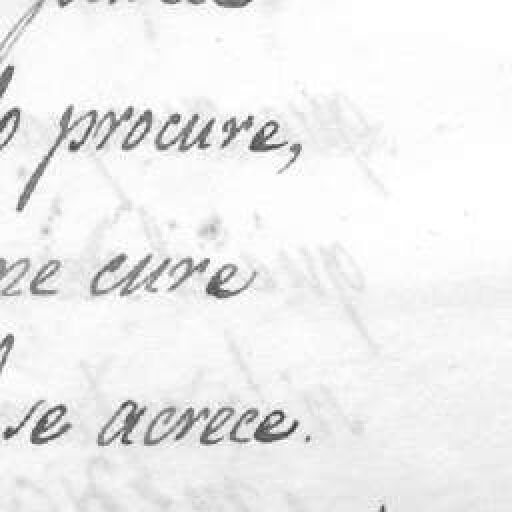 procure,
me cure
se acrece.